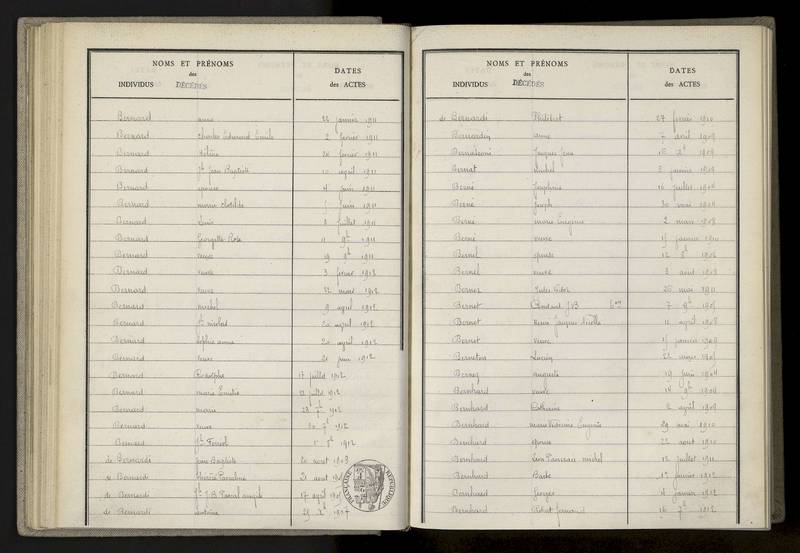 NOMS ET PRÉNOMS
des
INDIVIDUS DÉCÉDÉS
DATES
des ACTES
Bernard anne 22 janvier 1911
Bernard Charles Edmond Emile 2 février 1911
Bernard Hélène 26 février 1911
Bernard Jh Jean Baptiste 10 april 1911
Bernard épouse 4 juin 1911
Bernard marie Clotilde 5 juin 1911
Bernard Louis 8 juillet 1911
Bernard Georgette Rose 11 9b 1911
Bernard veuve 19 9b 1911
Bernard veuve 3 février 1912
Bernard veuve 22 mars 1912
Bernard michel 9 april 1912
Bernard nicolas 20 april 1912
Bernard Sophie anna 20 april 1912
Bernard veuve 21 juin 1912
Bernard Rodolphe 17 juillet 1912
Bernard marie Emilie juillet 1912
Bernard marie 28 7b 1912
Bernard veuve 30 7b 1912
Bernard Jh Ferréol 1r 8b 1912
de Bernardi Jean Baptiste 20 aout 1903
de Bernardi Thérèse 21 aout
de Bernardi J. B. Pascal 17 april
de Bernardi antoine 29 Xb 1907
FRANÇAISE RÉPUBLIQUE
NOMS ET PRÉNOMS
des
INDIVIDUS DÉCÉDÉS
DATES
des ACTES
de Bernardi Philibert 27 février 1910
Bernardin anne 7 avril 1909
Jacques Jean 1909
Bernat michel 8 janvier 1909
Berné Joséphine 16 juillet 1904
Berné Joseph 30 mai 1904
Berné marie Eugénie 2 mars 1908
Berné veuve 15 janvier 1910
Bernel épouse 12 8b 1906
Bernel veuve 3 aout 1908
Jules 26 mai 1911
Bernet J B 7 9b 1905
Bernet Jacques 11 april 1908
Bernet veuve 15 janvier 1909
Berneton Lucien 22 mars 1905
auguste 19 juin 1904
Bernhard veuve 14 9b 1904
Bernhard Catherine 2 april 1909
Bernhard marie Eugénie 29 mai 1910
Bernhard épouse 22 aout 1910
Bernhard michel 12 juillet 1911
Bernhard Barbe 12 février 1912
Bernhard Georges 4 janvier 1912
Bernhard Robert 16 7b 1912